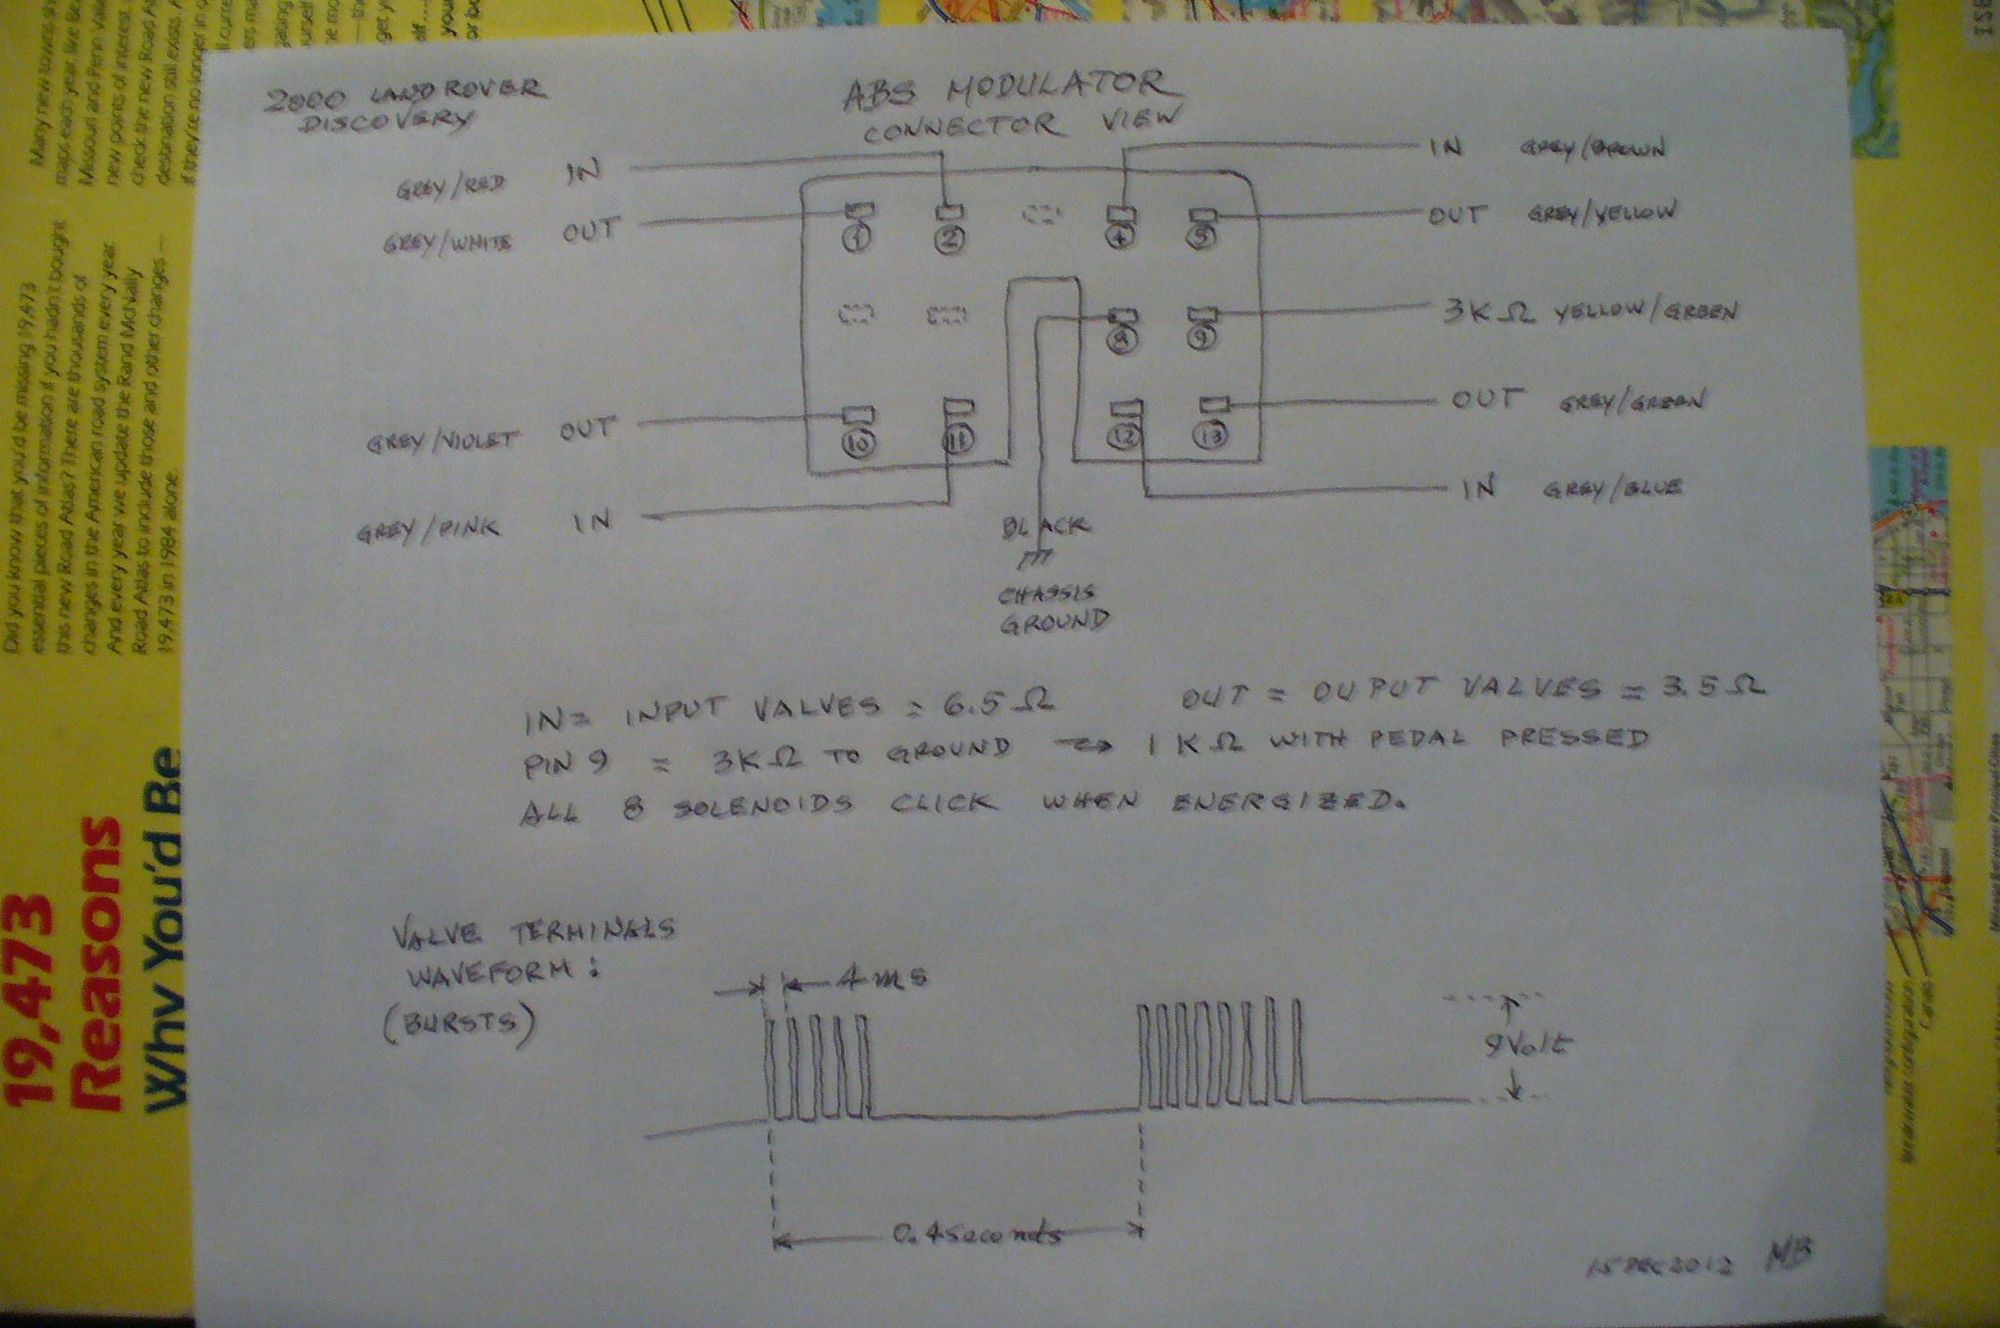 2000 LAND ROVER
DISCOVERY
ABS MODULATOR
CONNECTOR VIEW
GREY/RED IN
GREY/WHITE OUT
IN GREY/BROWN
OUT GREY/YELLOW
1 2 4 5
3KΩ YELLOW/GREEN
8 9
GREY/VIOLET OUT
OUT GREY/GREEN
10 11 12 13
GREY/PINK IN
IN GREY/BLUE
BLACK
CHASSIS
GROUND
IN = INPUT VALVES = 6.5Ω OUT = OUPUT VALVES = 3.5Ω
PIN 9 = 3KΩ TO GROUND → 1KΩ WITH PEDAL PRESSED
ALL 8 SOLENOIDS CLICK WHEN ENERGIZED.
VALVE TERMINALS
WAVEFORM:
(BURSTS)
4ms
9Volt
0.4seconds
15DEC2012 MB
Did you know that you'd be missing 19,473
essential pieces of information if you hadn't bought
this new Road Atlas? There are thousands of
changes in the American road system every year.
And every year we update the Rand McNally
Road Atlas to include those and other changes —
19,473 in 1984 alone.
Many new towns
maps each year, like
Missouri and Penn
new points of interest
check the new Road
destination still exists.
if they're no longer in
19,473
Reasons
Why You'd Be